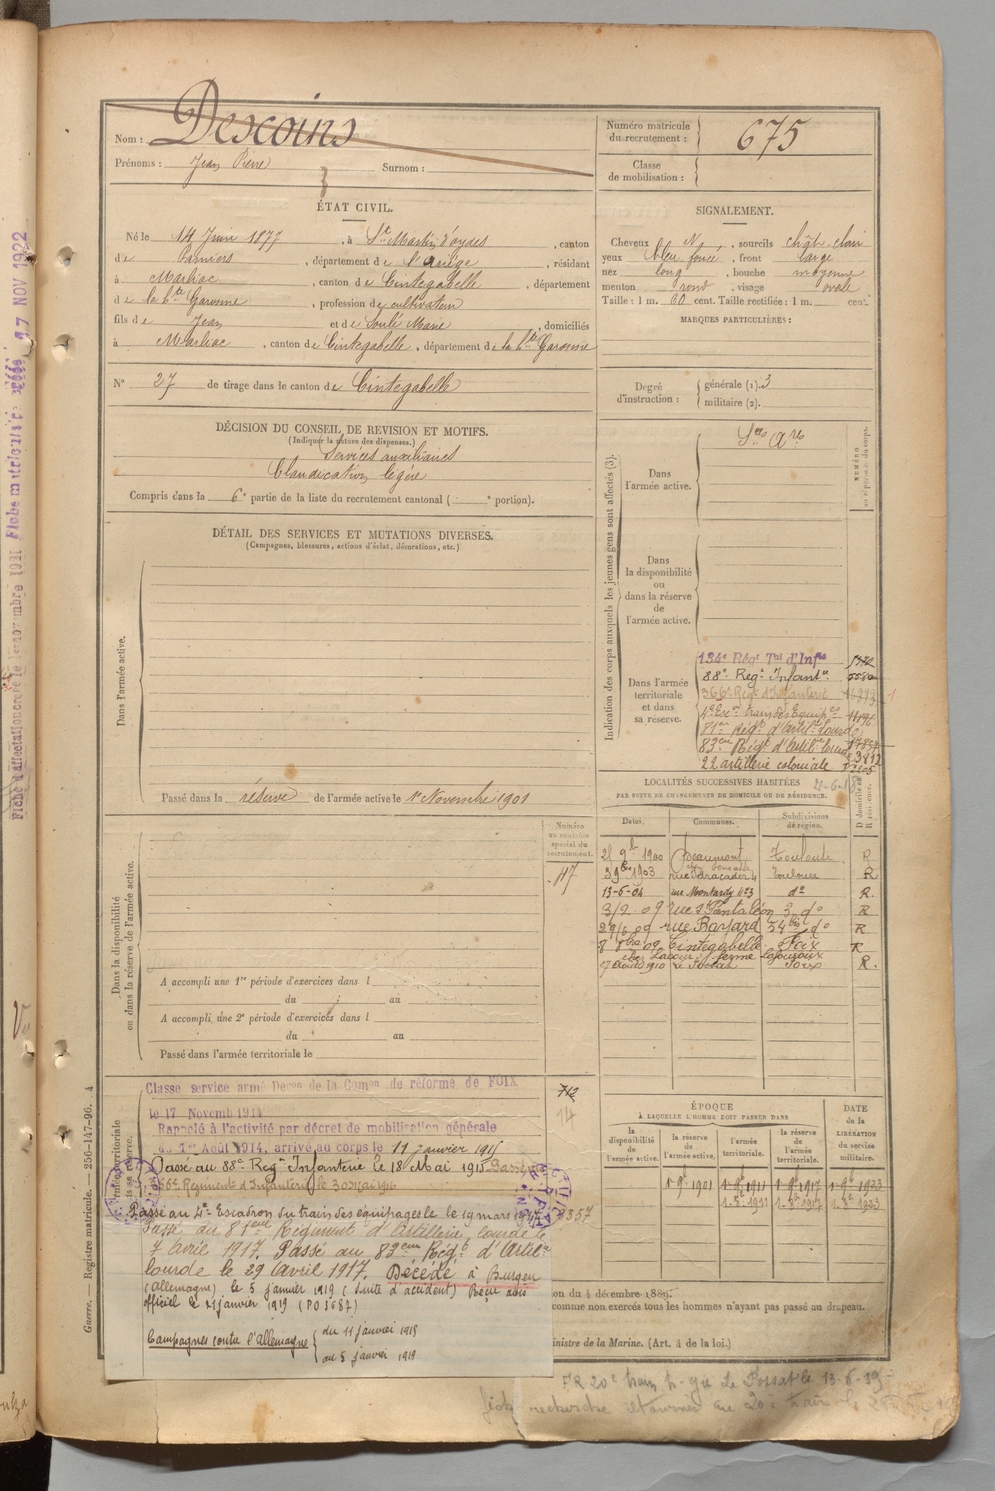 Nom : Descoins
Prénoms : Jean Pierre Surnom :
Numéro matricule du recrutement : 675
Classe de mobilisation :
ÉTAT CIVIL.
Né le 14 Juin 1877, à St Martin d'oydes, canton
de Pamiers, département de l'Ariège, résidant
à Marliac, canton de Cintegabelle, département
de la hte Garonne, profession de cultivateur
fils de Jean et de Soulé Marie, domiciliés
à Marliac, canton de Cintegabelle, département de la hte Garonne
N° 27 de tirage dans le canton de Cintegabelle
SIGNALEMENT.
Cheveux N, sourcils chât. clair
yeux bleu foncé, front large
nez long, bouche moyenne
menton rond, visage ovale
Taille : 1 m. 60 cent. Taille rectifiée : 1 m. cent.
MARQUES PARTICULIÈRES :
Degré d'instruction : générale (1). 3
militaire (2).
DÉCISION DU CONSEIL DE REVISION ET MOTIFS.
(Indiquer la nature des dispenses.)
Services auxiliaires
Claudication légère
Compris dans la 6e partie de la liste du recrutement cantonal ( e portion).
DÉTAIL DES SERVICES ET MUTATIONS DIVERSES.
(Campagnes, blessures, actions d'éclat, décorations, etc.)
Dans l'armée active.
Passé dans la réserve de l'armée active le 1er Novembre 1901
Indication des corps auxquels les jeunes gens sont affectés (3).
NUMÉRO
Dans l'armée active.
Ses Ares
Dans la disponibilité ou dans la réserve de l'armée active.
Dans l'armée territoriale et dans sa réserve.
134e Régt Tal d'Infie
88e Regt Infantie
366e Régt d'Infanterie
4e Escon train des Equipges
81eme Régt d'artillie lourde
83eme Regt d'artillie lourde
22 artillerie coloniale
LOCALITÉS SUCCESSIVES HABITÉES
PAR SUITE DE CHANGEMENTS DE DOMICILE OU DE RÉSIDENCE.
Dates. Communes. Subdivisions de région. D domicile ou R résidence.
1900 Beaumont Toulouse R
1903 Toulouse R
13-6-04 rue Montardy No 3 do R.
3/2 09 rue St Pantaléon 3 do R
29/6 09 rue Bayard 54 bis do R
8 8bre 09 Cintegabelle Foix R
17 Août 1910 Foix R.
Numéro au contrôle spécial du recrutement.
117
Dans la disponibilité ou dans la réserve de l'armée active.
A accompli une 1re période d'exercices dans l
du au
A accompli une 2e période d'exercices dans l
du au
Passé dans l'armée territoriale le
Classe service armé Decon de la Comon de réforme de FOIX
le 17 Novemb 1914
Rappelé à l'activité par décret de mobilisation générale
du 1er Août 1914, arrivé au corps le 11 janvier 1915
Passé au 88e Regt Infanterie le 18 Mai 1915 Passé au
366e Régiment d'Infanterie le 30 Mai 1916
Passé au 4e Escadron du train des équipages le 19 mars 1917
Passé au 81eme Régiment d'Artillerie lourde le
7 avril 1917. Passé au 83eme Régt d'Artilie
lourde le 29 avril 1917. Décédé à Burgen
(Allemagne) le 5 janvier 1919 (Suite d'accident) Reçu avis
officiel le 21 janvier 1919 (PO 3687)
Campagnes contre l'Allemagne du 11 janvier 1915
au 5 janvier 1919
712
14
ÉPOQUE
À LAQUELLE L'HOMME DOIT PASSER DANS
la disponibilité de l'armée active. la réserve de l'armée active. l'armée territoriale. la réserve de l'armée territoriale.
DATE de la LIBÉRATION du service militaire.
1er 9b 1901 1er 9b 1911 1er 9b 1917 1er 9b 1923
on du 4 décembre 1889.
comme non exercés tous les hommes n'ayant pas passé au drapeau.
inistre de la Marine. (Art. 4 de la loi.)
Guerre. — Registre matricule. — 256-147-96.
Fiche d'affectation créée le 16 novembre 1921
7 NOV 1922